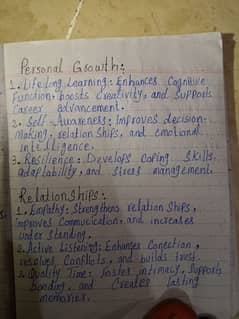 Personal Growth:
1. Lifelong Learning: Enhances Cognitive
Function, boosts Creativity, and Supports
Career advancement.
2. Self-Awareness: Improves decision-
Making, relation Ships, and emotional
intelligence.
3. Resilience: Develops Coping Skills,
adaptability, and stress management.
Relationships:
1. Empathy: Strengthens relation Ships,
improves Communication, and increases
under Standing.
2. Active Listening: Enhances Conection,
resolves Conflicts, and builds trust.
3. Quality Time: foster intimacy, Supports
bonding, and Creates lasting
memories.